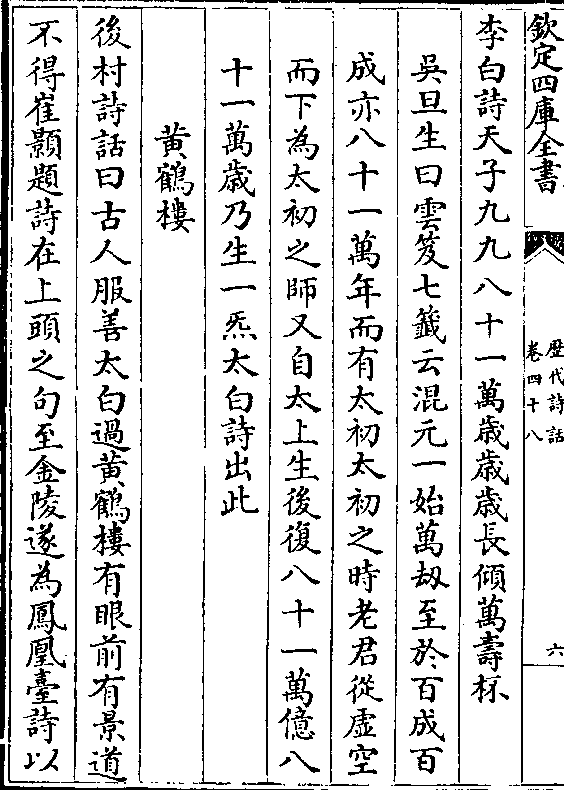 欽定四庫全書
歴代詩話
卷四十八
六
李白詩天子九九八十一萬歳歳歳長傾萬壽杯
吳旦生曰雲笈七籖云混元一始萬刼至於百成百
成亦八十一萬年而有太初太初之時老君從虛空
而下為太初之師又自太上生後復八十一萬億八
十一萬歳乃生一炁太白詩出此
黄鶴樓
後村詩話曰古人服善太白過黄鶴樓有眼前有景道
不得崔顥題詩在上頭之句至金陵遂為鳳凰臺詩以